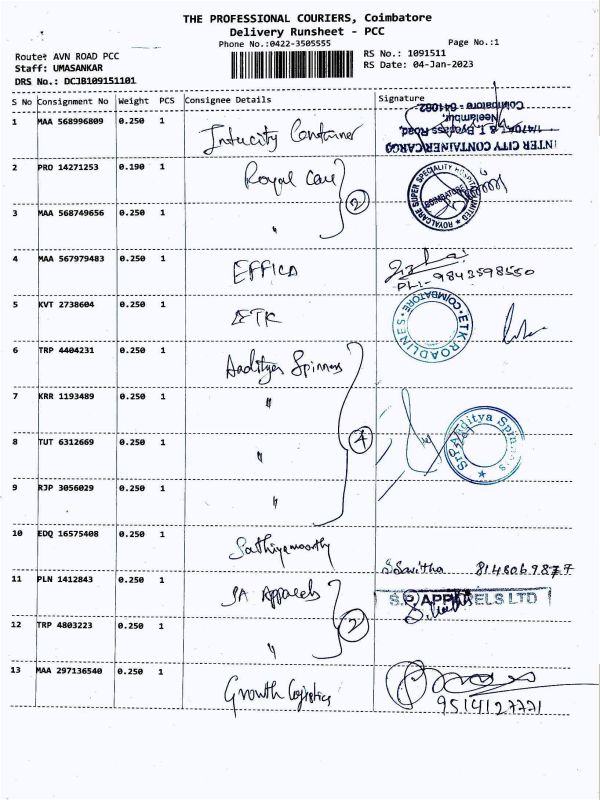 THE PROFESSIONAL COURIERS, Coimbatore
Delivery Runsheet - PCC
Phone No.:0422-3505555
Page No.:1
Route: AVN ROAD PCC
RS No.: 1091511
Staff: UMASANKAR
RS Date: 04-Jan-2023
DRS No.: DCJB109151101
S No Consignment No Weight PCS Consignee Details Signature
1 MAA 568996809 0.250 1 Intercity Container
INTER CITY CONTAINER CARGO
Neelambur,
Coimbatore - 641062.
2 PRO 14271253 0.190 1 Royal Care
ROYALCARE SUPER SPECIALITY HOSPITAL LIMITED
COIMBATORE
3 MAA 568749656 0.250 1 "
2
4 MAA 567979483 0.250 1 EFFICA
PH:-9843598550
5 KVT 2738604 0.250 1 ETK
ETK ROADLINES COIMBATORE
6 TRP 4404231 0.250 1 Aaditya Spinners
7 KRR 1193489 0.250 1 "
8 TUT 6312669 0.250 1 "
4
Sri Aaditya Spinners
9 RJP 3056029 0.250 1 "
10 EDQ 16575408 0.250 1 Sathiyamoorthy
S. Savitha
11 PLN 1412843 0.250 1 SA Apparels
S.P. APPARELS LTD
12 TRP 4803223 0.250 1 "
2
13 MAA 297136540 0.250 1 Growth Logistics
9514127771